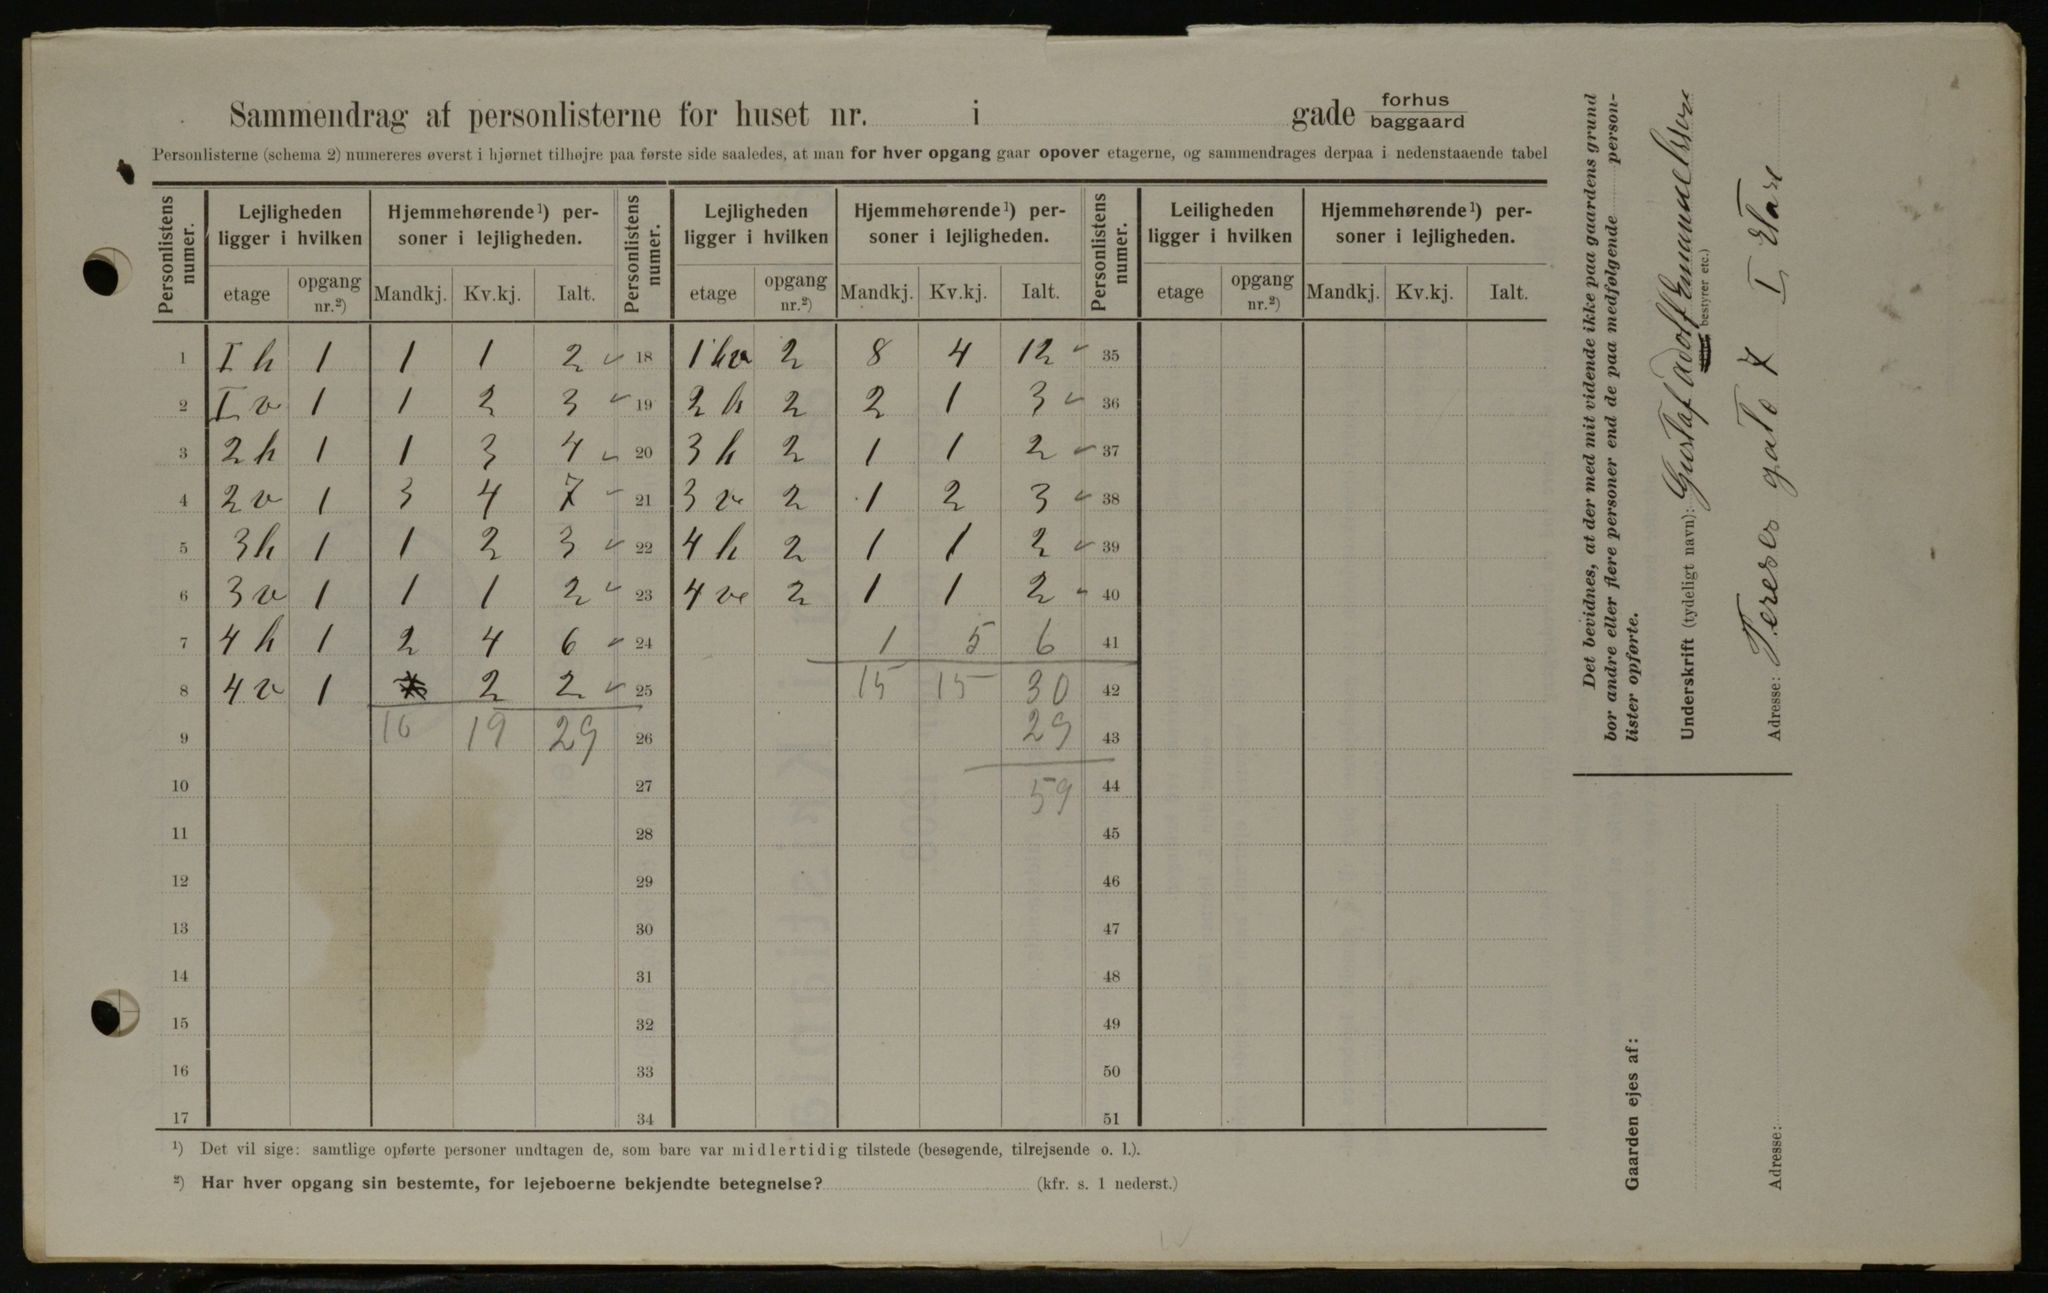 Sammendrag af personlisterne for huset nr. i gade forhus baggaard
Personlisterne (schema 2) numereres øverst i hjørnet tilhøjre paa første side saaledes, at man for hver opgang gaar opover etagerne, og sammendrages derpaa i nedenstaaende tabel
Personlistens numer. Lejligheden ligger i hvilken Hjemmehørende¹) personer i lejligheden. Personlistens numer. Lejligheden ligger i hvilken Hjemmehørende¹) personer i lejligheden. Personlistens numer. Leiligheden ligger i hvilken Hjemmehørende¹) personer i lejligheden.
etage opgang nr.²) Mandkj. Kv.kj. Ialt. etage opgang nr.²) Mandkj. Kv.kj. Ialt. etage opgang nr.²) Mandkj. Kv.kj. Ialt.
1 I h 1 1 1 2 18 1 hv 2 8 4 12 35
2 I v 1 1 2 3 19 2 h 2 2 1 3 36
3 2 h 1 1 3 4 20 3 h 2 1 1 2 37
4 2 v 1 3 4 7 21 3 ve 2 1 2 3 38
5 3 h 1 1 2 3 22 4 h 2 1 1 2 39
6 3 v 1 1 1 2 23 4 ve 2 1 1 2 40
7 4 h 1 2 4 6 24 1 5 6 41
8 4 v 1 2 2 25 15 15 30 42
9 10 19 29 26 29 43
10 27 59 44
11 28 45
12 29 46
13 30 47
14 31 48
15 32 49
16 33 50
17 34 51
¹) Det vil sige: samtlige opførte personer undtagen de, som bare var midlertidig tilstede (besøgende, tilrejsende o. l.).
²) Har hver opgang sin bestemte, for lejeboerne bekjendte betegnelse? (kfr. s. 1 nederst.)
Det bevidnes, at der med mit vidende ikke paa gaardens grund
bor andre eller flere personer end de paa medfølgende person-
lister opførte.
Underskrift (tydeligt navn): Gustaf Adolf Emanuelsson
bestyrer etc.)
Adresse: Tereses gate 7 I Etare
Gaarden ejes af:
Adresse: